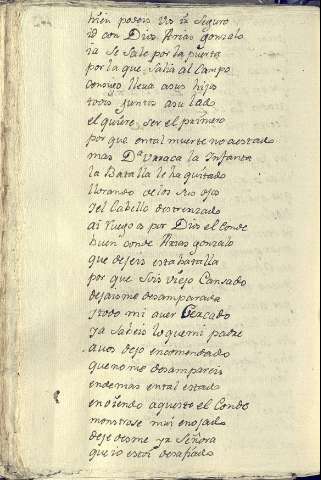 bien podeis vos ir seguro
id con Dios Arias gonzalo
ia se sale por la puerta
por la que salia al Campo
consigo lleva a sus hijos
todos juntos a su lado
el quiere ser el primero
por que en tal muerte no a estado
mas Dª Vrraca la Infanta
la Batalla le ha quitado
llorando de los sus ojos
y el Cabello destrenzado
ai ruego a por Dios el Conde
buen conde Arias gonzalo
que dejeis esta batalla
por que sois viejo Cansado
dejaisme desamparada
y todo mi aver Cercado
ya sabeis lo que mi padre
a vos dejo encomendado
que no me desampareis
endemas en tal estado
en oiendo aquesto el Conde
monstrose mui enojado
dejedesme yr Señora
que io estoi desafiado